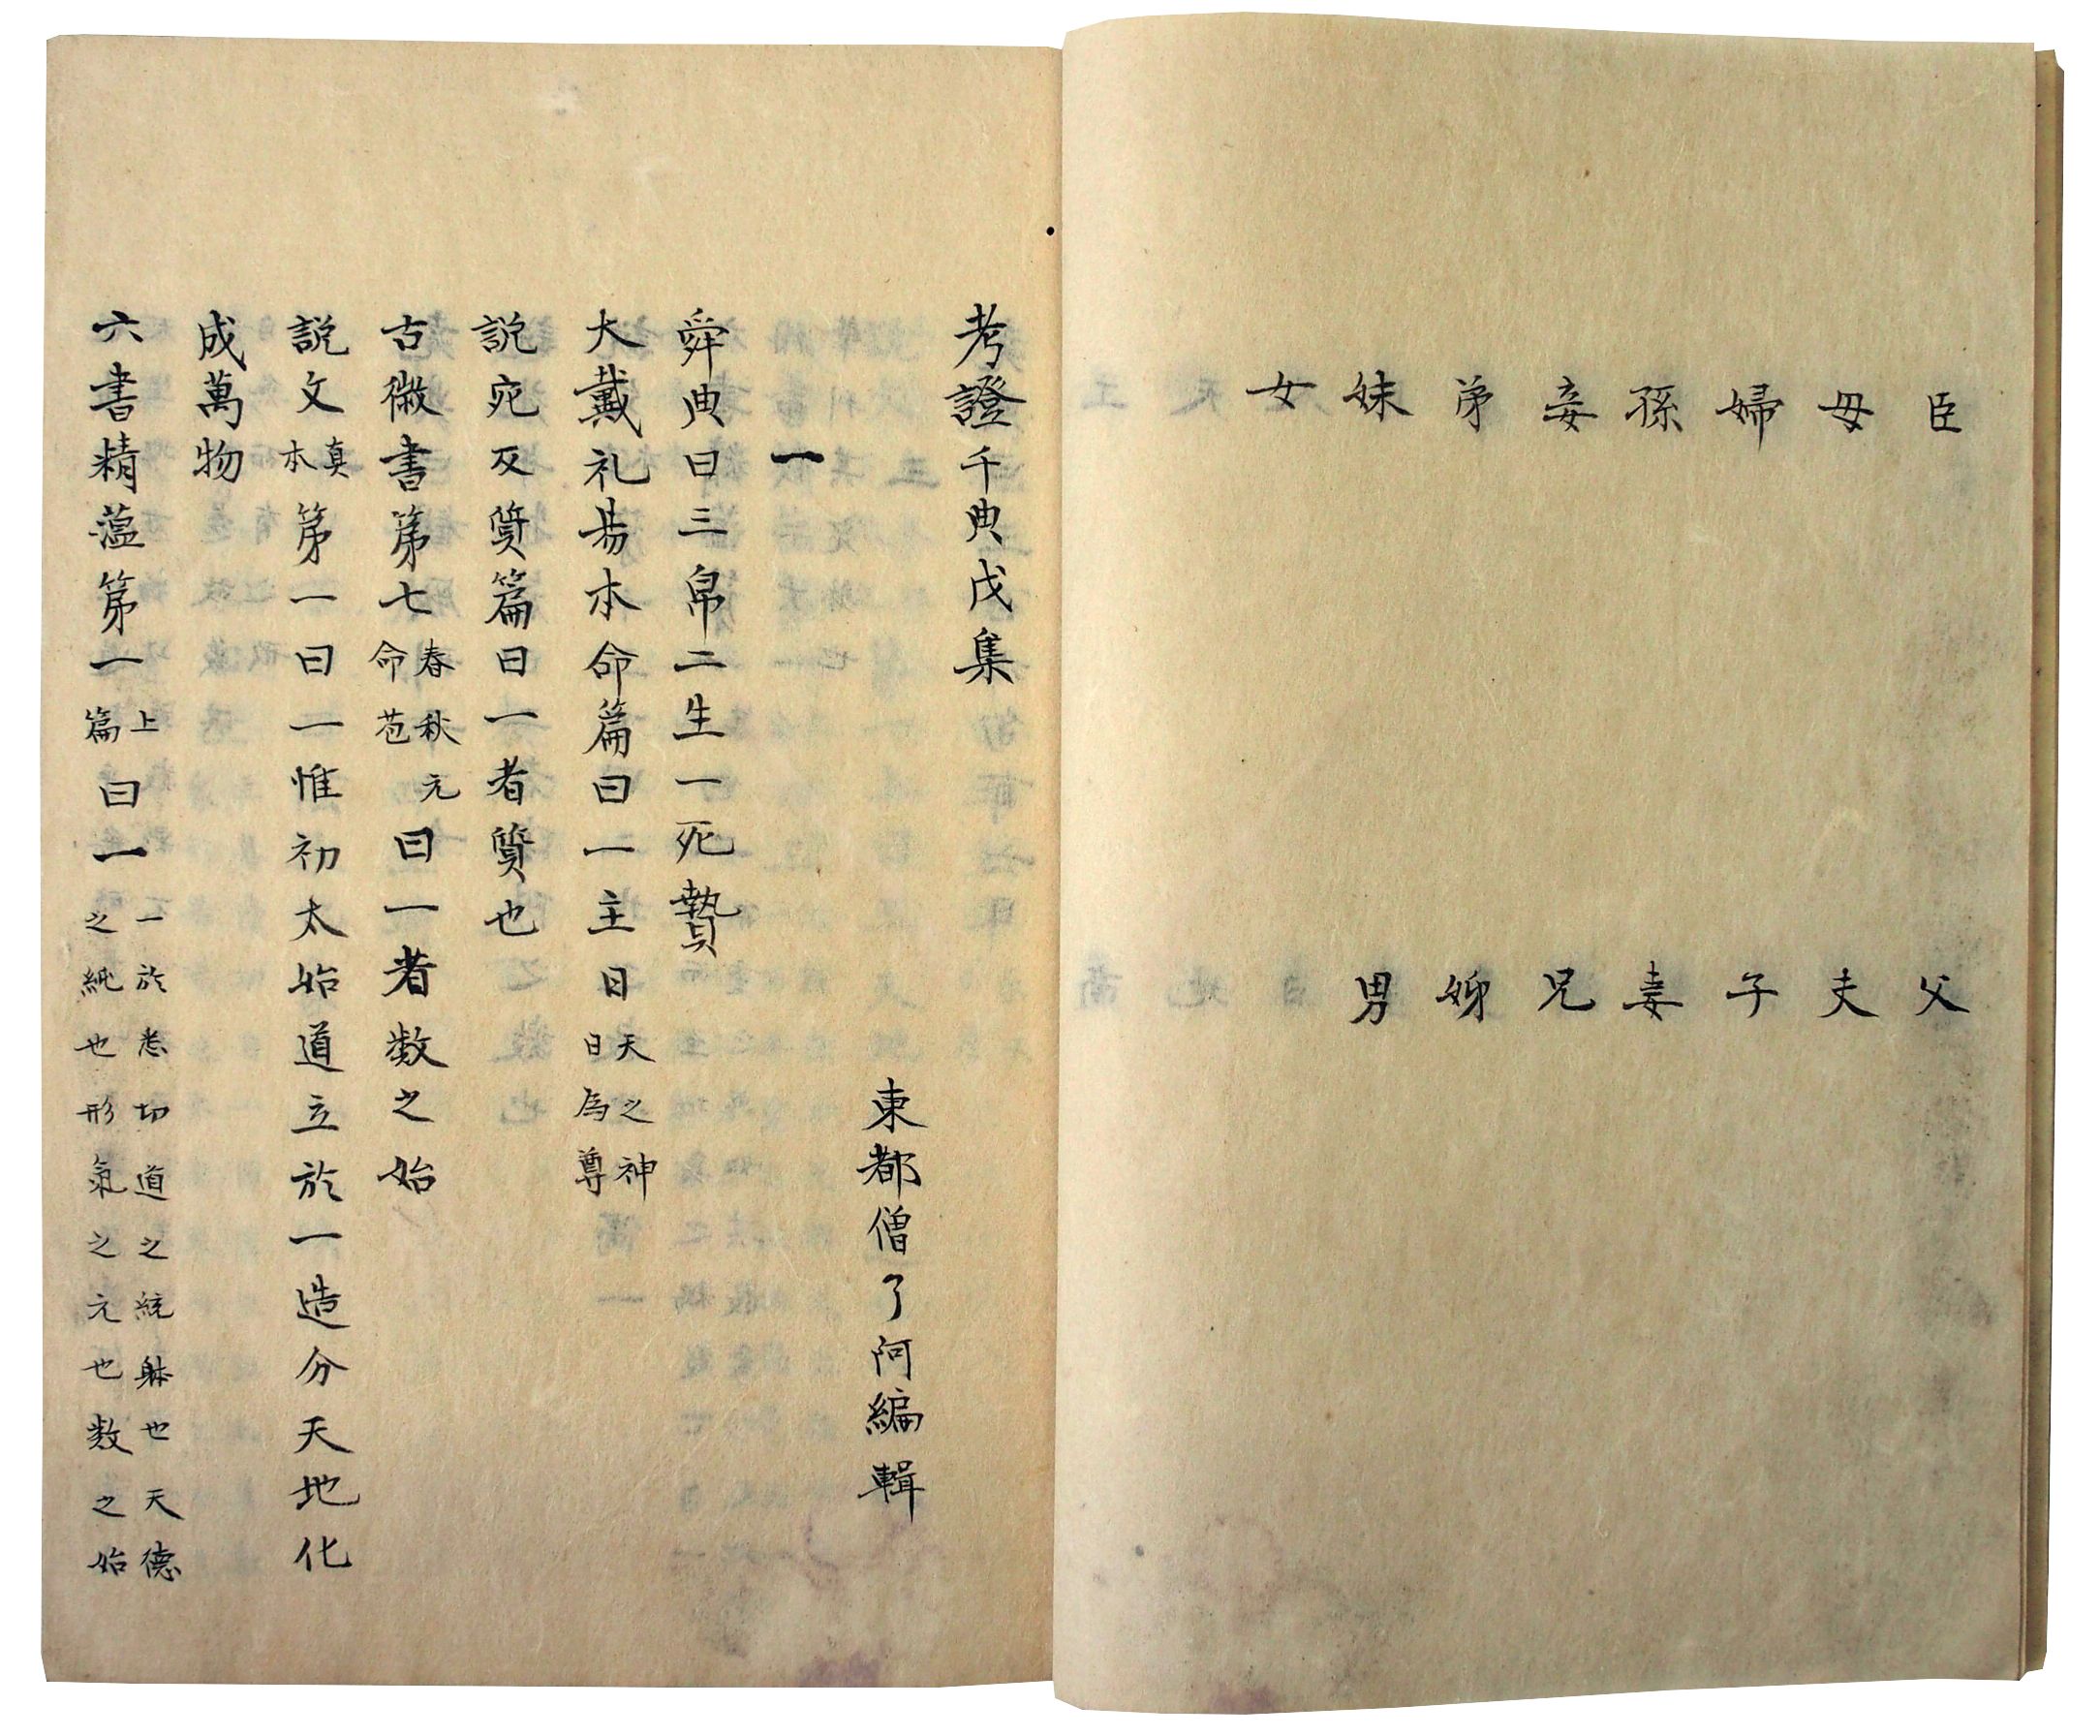 臣 父
母 夫
婦 子
孫 妻
妾 兄
弟 姊
妹 男
女
考證千典戊集
東都僧了阿編輯
一
舜典曰三帛二生一死贄
大戴礼易本命篇曰一主日天之神日為尊
説苑反質篇曰一者質也
古微書第七春秋元命苞曰一者数之始
説文真本第一曰一惟初太始道立於一造分天地化
成萬物
六書精薀第一上篇曰一一於悉切道之統躰也天德之純也形氣之元也数之始